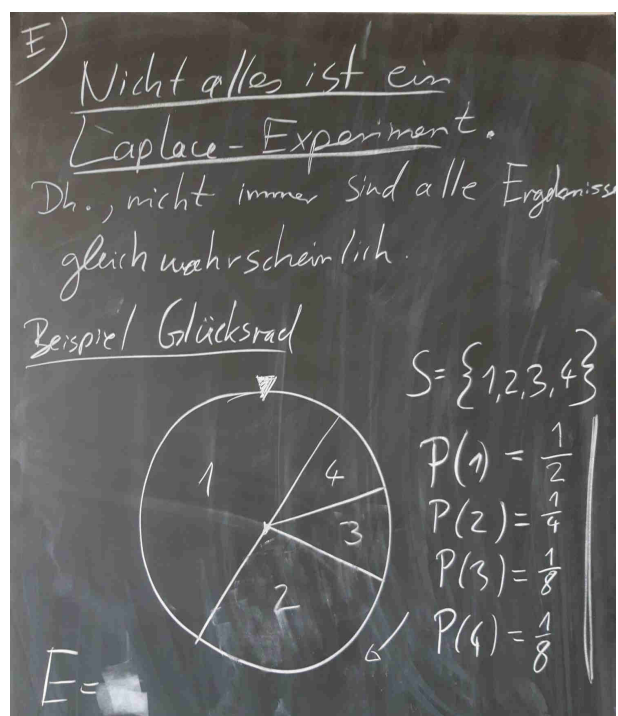 E)
Nicht alles ist ein
Laplace-Experiment.
Dh., nicht immer sind alle Ergebnisse
gleich wahrscheinlich.
Beispiel Glücksrad
S={1,2,3,4}
1
4
3
2
P(1) = 1/2
P(2) = 1/4
P(3) = 1/8
P(4) = 1/8
E=